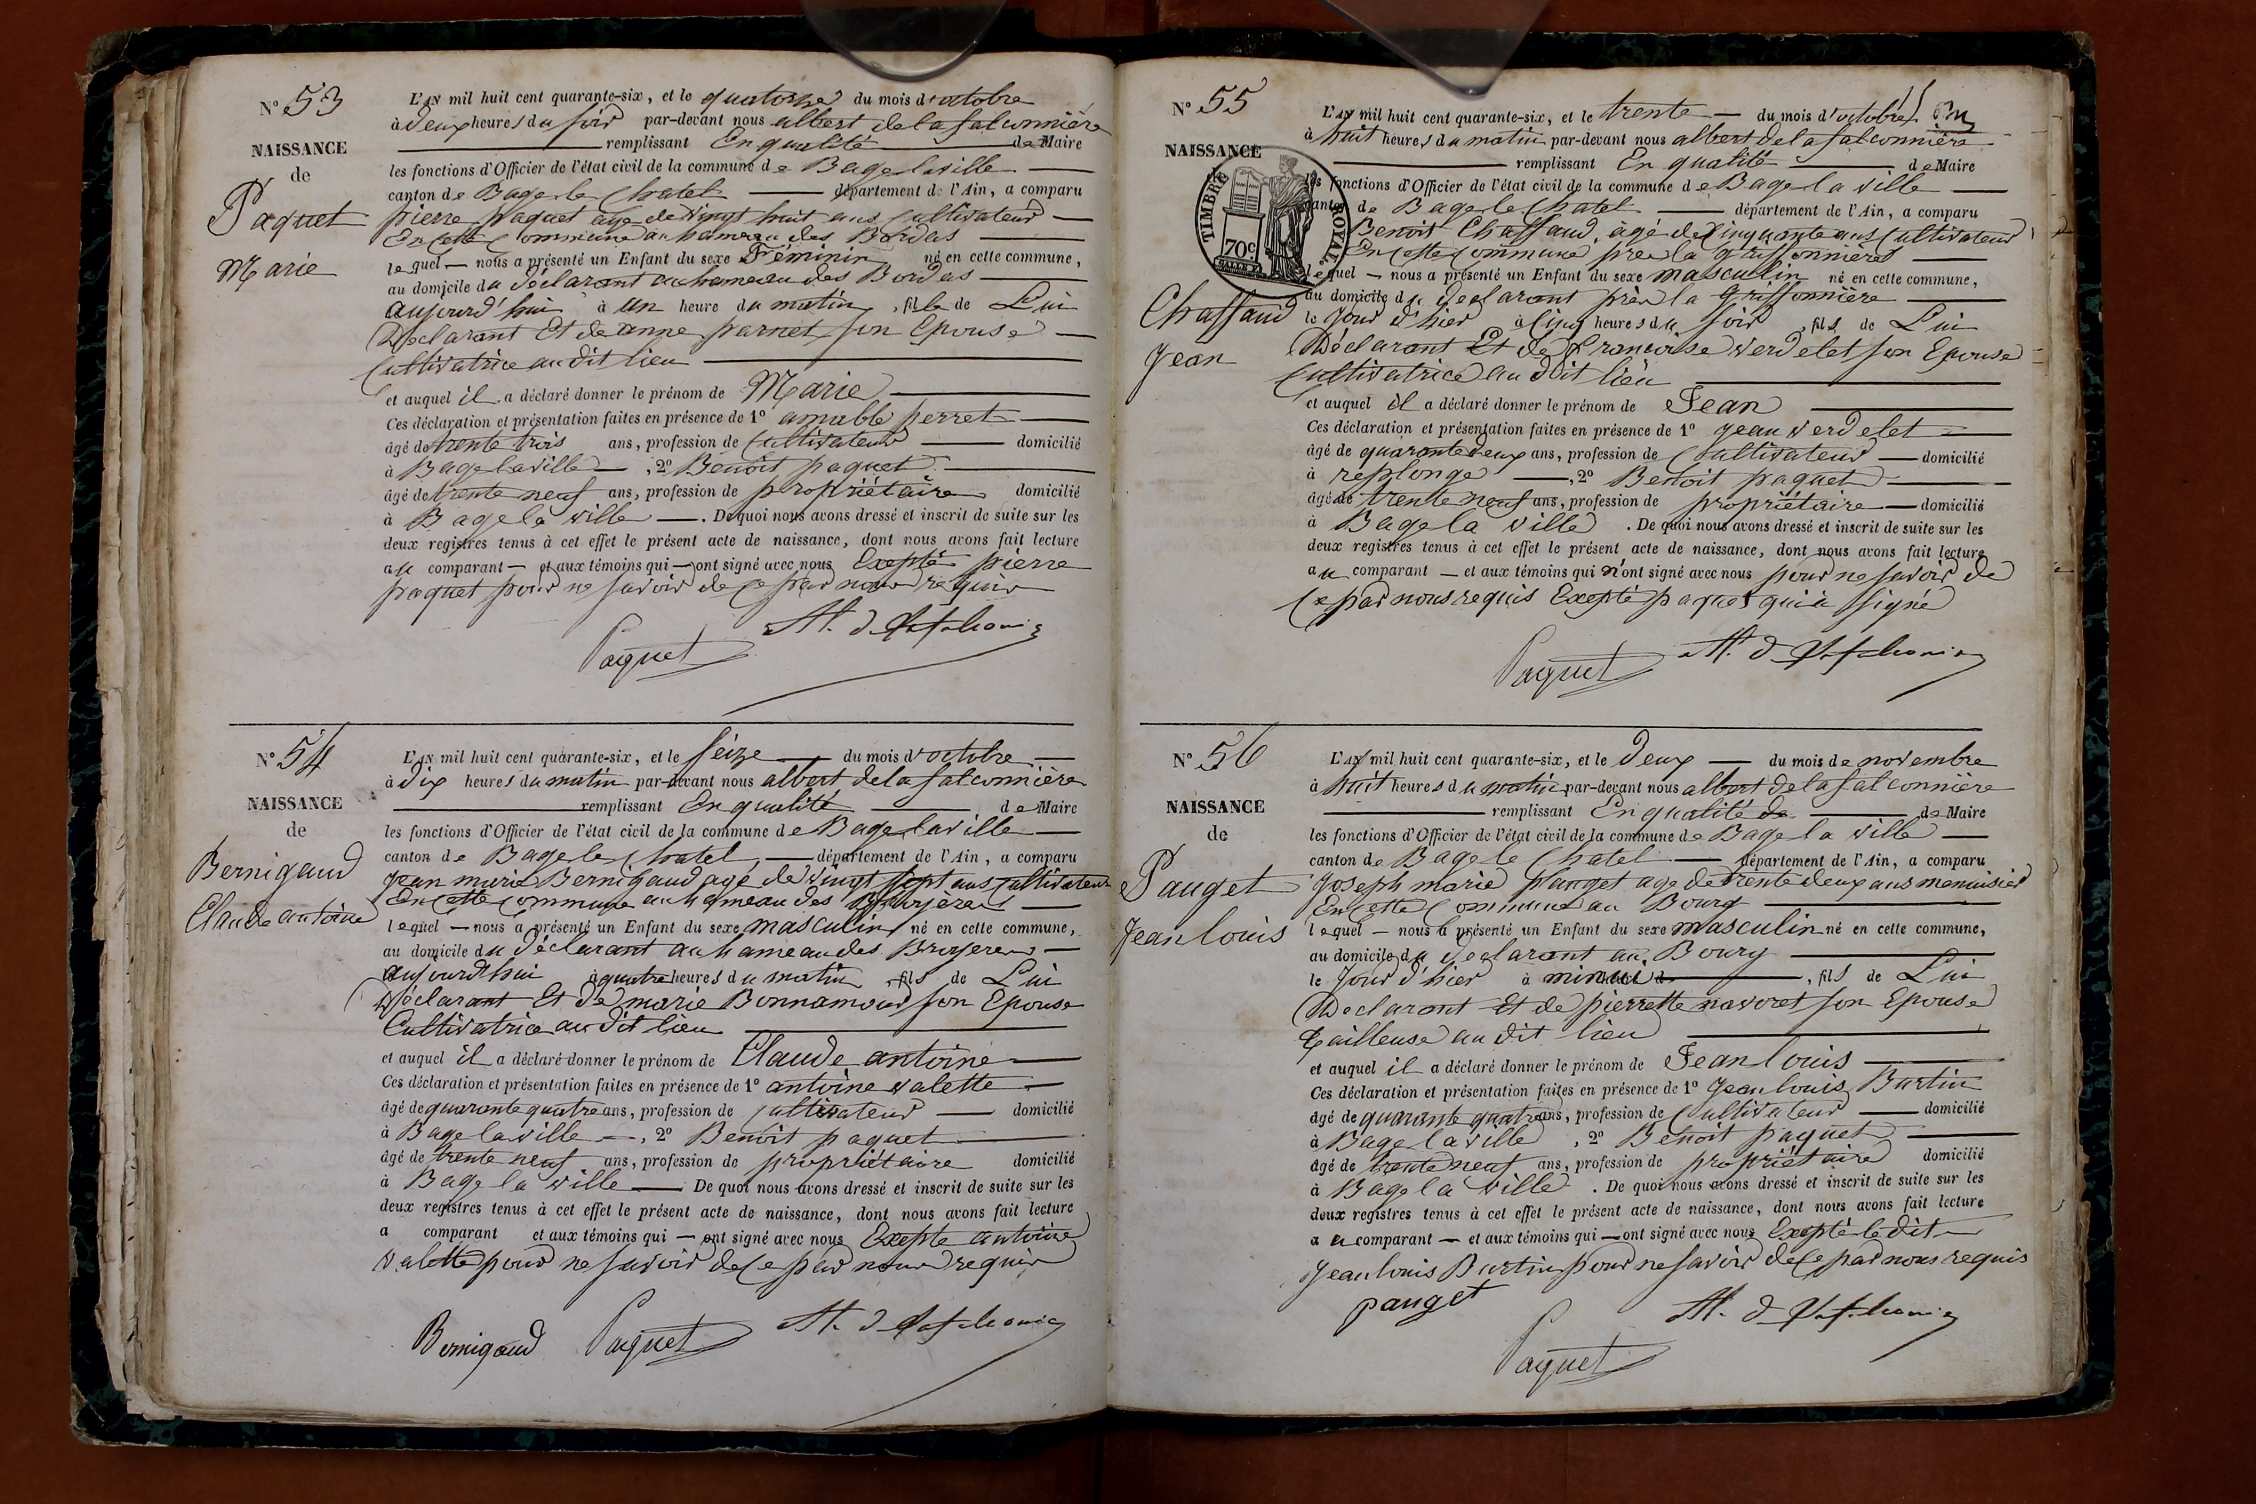 N° 53
NAISSANCE
de
Paquet
Marie
L'AN mil huit cent quarante-six, et le quatorze du mois d'octobre
à deux heures du soir par-devant nous albert de la falconnière
remplissant En qualité de Maire
les fonctions d'Officier de l'état civil de la commune de Bage la ville
canton de Bage le Chatel département de l'Ain, a comparu
pierre paquet age de vingt huit ans Cultivateur
En cette Commune au hameau des Bordas
lequel nous a présenté un Enfant du sexe Féminin né en cette commune,
au domicile du déclarant au hameau des Bordas
aujourd'hui à un heure du matin, fille de Lui
Déclarant Et de anne parnet son Epouse
Cultivatrice au dit lieu
et auquel il a déclaré donner le prénom de Marie
Ces déclaration et présentation faites en présence de 1° amable perret
âgé de trente trois ans, profession de Cultivateur domicilié
à Bage la ville, 2° Benoit paquet
âgé de trente neuf ans, profession de propriétaire domicilié
à Bage la ville. De quoi nous avons dressé et inscrit de suite sur les
deux registres tenus à cet effet le présent acte de naissance, dont nous avons fait lecture
au comparant et aux témoins qui ont signé avec nous Excepté pierre
paquet pour ne savoir de Ce par nous requis
Paquet
N° 54
NAISSANCE
de
Bernigaud
Claude antoine
L'AN mil huit cent quarante-six, et le seize du mois d'octobre
à dix heures du matin par-devant nous albert de la falconnière
remplissant En qualité de Maire
les fonctions d'Officier de l'état civil de la commune de Bage la ville
canton de Bage le Chatel, département de l'Ain, a comparu
Jean marie Bernigaud age de vingt sept ans Cultivateur
En cette Commune au hameau des Bruyères
lequel nous a présenté un Enfant du sexe masculin né en cette commune,
au domicile du déclarant au hameau des Bruyeres
aujourd'hui à quatre heures du matin, fils de Lui
Déclarant Et de marie Bonnamour son Epouse
Cultivatrice au dit lieu
et auquel il a déclaré donner le prénom de Claude antoine
Ces déclaration et présentation faites en présence de 1° antoine valette
âgé de quarante quatre ans, profession de Cultivateur domicilié
à Bage la ville, 2° Benoit paquet
âgé de trente neuf ans, profession de propriétaire domicilié
à Bage la ville De quoi nous avons dressé et inscrit de suite sur les
deux registres tenus à cet effet le présent acte de naissance, dont nous avons fait lecture
a comparant et aux témoins qui ont signé avec nous Excepté antoine
valette pour ne savoir de Ce par nous requis
Bernigaud Paquet
N° 55
NAISSANCE
TIMBRE ROYAL
70c
Chaffaud
Jean
L'AN mil huit cent quarante-six, et le trente du mois d'octobre
à huit heures du matin par-devant nous albert de la falconnière
remplissant En qualité de Maire
les fonctions d'Officier de l'état civil de la commune de Bage la ville
canton de Bage le Chatel département de l'Ain, a comparu
Benoit Chaffaud, agé de Cinquante ans Cultivateur
En cette Commune près la Griffonnière
lequel nous a présenté un Enfant du sexe masculin né en cette commune,
au domicile du déclarant près la Griffonnière
le Jour d'hier à Cinq heures du soir, fils de Lui
Déclarant Et de francoise verdelet son Epouse
Cultivatrice au dit lieu
et auquel il a déclaré donner le prénom de Jean
Ces déclaration et présentation faites en présence de 1° jean verdelet
âgé de quarante deux ans, profession de Cultivateur domicilié
à replonge, 2° Benoit paquet
âgé de trente neuf ans, profession de propriétaire domicilié
à Bage la ville. De quoi nous avons dressé et inscrit de suite sur les
deux registres tenus à cet effet le présent acte de naissance, dont nous avons fait lecture
au comparant et aux témoins qui n'ont signé avec nous pour ne savoir de
Ce par nous requis Excepté paquet qui à signé
Paquet
N° 56
NAISSANCE
de
Pauget
Jean louis
L'AN mil huit cent quarante-six, et le deux du mois de novembre
à huit heures du matin par-devant nous albert de la falconnière
remplissant En qualité de de Maire
les fonctions d'Officier de l'état civil de la commune de Bage la ville
canton de Bage le Chatel département de l'Ain, a comparu
Joseph marie pauget age de trente deux ans menuisier
En cette Commune au Bourg
lequel nous a présenté un Enfant du sexe masculin né en cette commune,
au domicile du déclarant au Bourg
le Jour d'hier à minuit, fils de Lui
Declarant Et de pierrette navoret son Epouse
Tailleuse au dit lieu
et auquel il a déclaré donner le prénom de Jean louis
Ces déclaration et présentation faites en présence de 1° Jean louis Burtin
âgé de quarante quatre ans, profession de Cultivateur domicilié
à Bage la ville, 2° Benoit paquet
âgé de trente neuf ans, profession de propriétaire domicilié
à Bage la ville. De quoi nous avons dressé et inscrit de suite sur les
deux registres tenus à cet effet le présent acte de naissance, dont nous avons fait lecture
au comparant et aux témoins qui ont signé avec nous Excepté le dit
Jean louis Burtin pour ne savoir de Ce par nous requis
pauget
Paquet